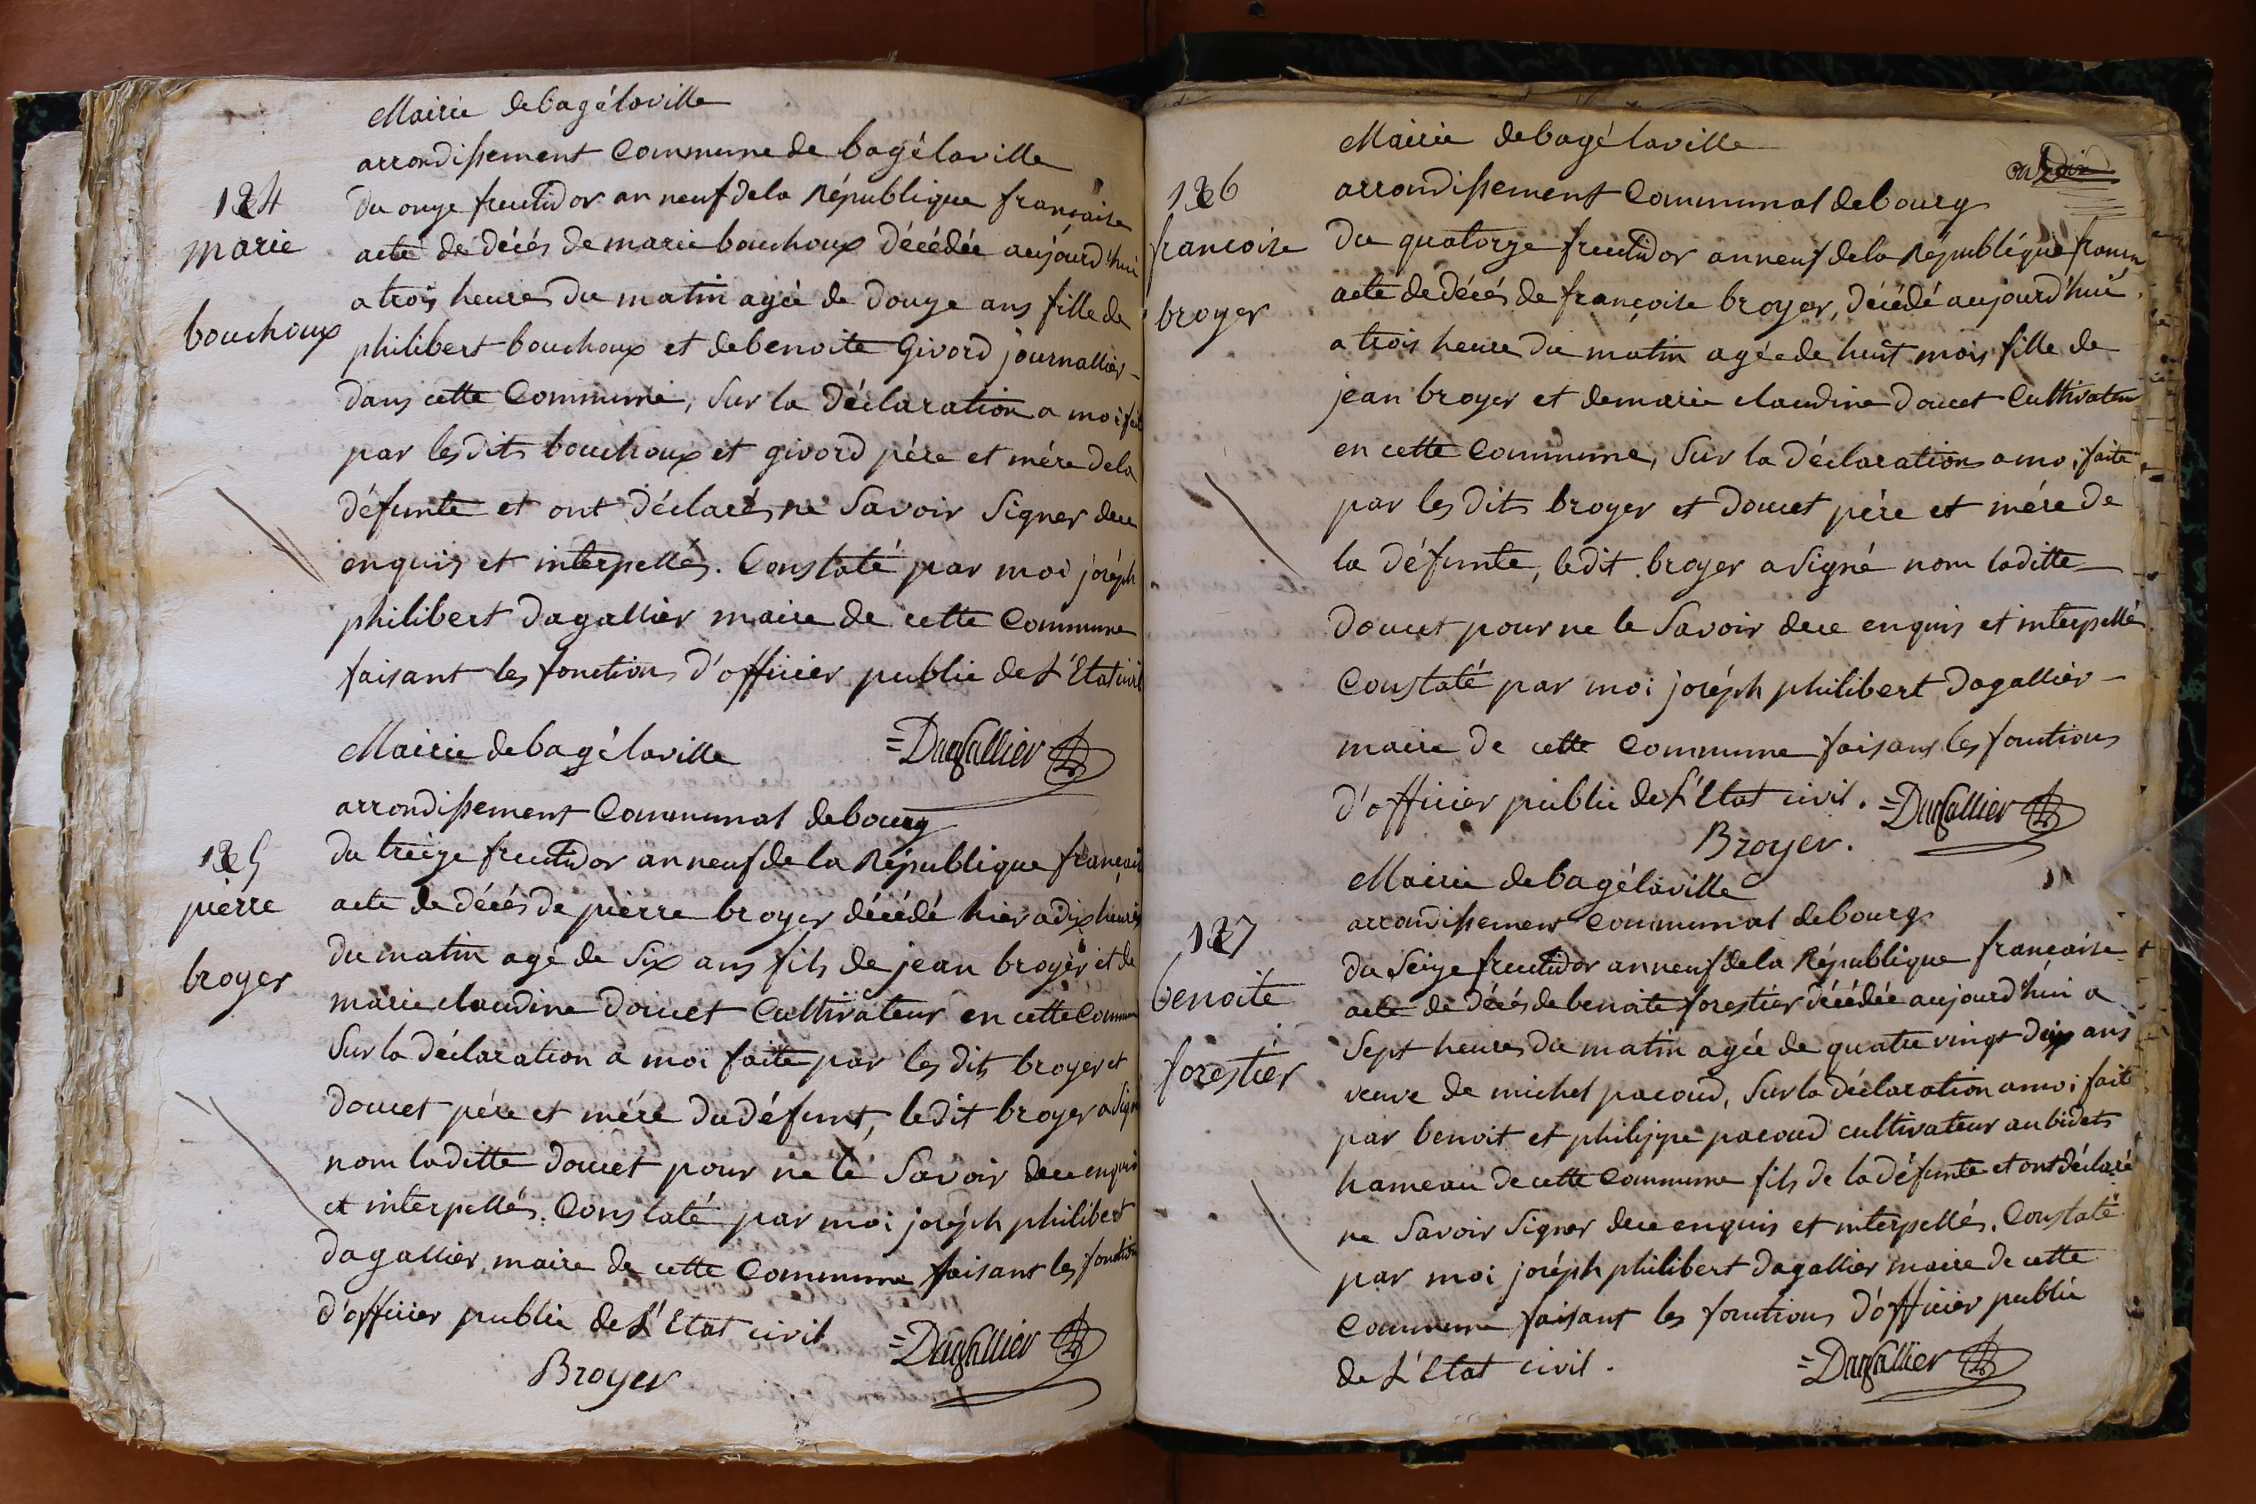 Mairie de bagé laville
arrondissement Commune de bagé laville
124
marie
bouchoux
Du onze fructidor an neuf de la République française
acte de décés de marie bouchoux décédée aujourd'hui
a trois heures du matin agée de douze ans fille de
philibert bouchoux et de benoite Givord journallier
dans cette Commune, Sur la déclaration a moi fait
par les dits bouchoux et givord pére et mére de la
défunte et ont déclarés ne Savoir Signer de ce
enquis et interpellés. Constaté par moi joséph
philibert dagallier maire de cette Commune
faisant les fonctions d'officier public de L'Etat civil
=Dagallier
Mairie de bagé laville
arrondissement Communal de bourg
125
pierre
broyer
du treize fructidor an neuf de la République française
acte de décés de pierre broyer décédé hier a dix heures
du matin agé de Six ans fils de jean broyer et de
marie claudine doucet Cultivateur en cette Commune
Sur la déclaration a moi faite par les dits broyer et
doucet pére et mére du défunt, ledit broyer a Signé
nom laditte doucet pour ne le Savoir de ce enquis
et interpellés. Constaté par moi joséph philibert
dagallier maire de cette Commune faisant les fonctions
d'officier public de L'Etat civil
=Dagallier
Broyer
Mairie de bagé laville
arrondissement Communal de bourg
126
francoise
broyer
Du quatorze fructidor an neuf de la République
acte de décés de françoise broyer, décédé aujourd'hui
a trois heure du matin agée de huit mois fille de
jean broyer et de marie claudine doucet Cultivateur
en cette Commune, Sur la déclaration a moi faite
par les dits broyer et doucet pére et mére de
la défunte, ledit broyer a Signé nom laditte
doucet pour ne le Savoir de ce enquis et interpellé
Constaté par moi joséph philibert dagallier
maire de cette Commune faisant les fonctions
d'officier public de L'Etat civil. =Dagallier
Broyer.
Mairie de bagé laville
arrondissement Communal de bourg
127
benoite
forestier
du Seize fructidor an neuf de la République francaise
acte de décés de benoite forestier décédée aujourd'hui a
Sept heures du matin agée de quatre vingt dix ans
veuve de michel pacoud, Sur la déclaration a moi fait
par benoit et philippe pacoud cultivateur au bidets
hameau de cette Commune fils de la défunte et ont déclaré
ne Savoir Signer de ce enquis et interpellés. Constaté
par moi joséph philibert dagallier maire de cette
Commune faisant les fonctions d'officier public
de L'Etat civil.
=Dagallier